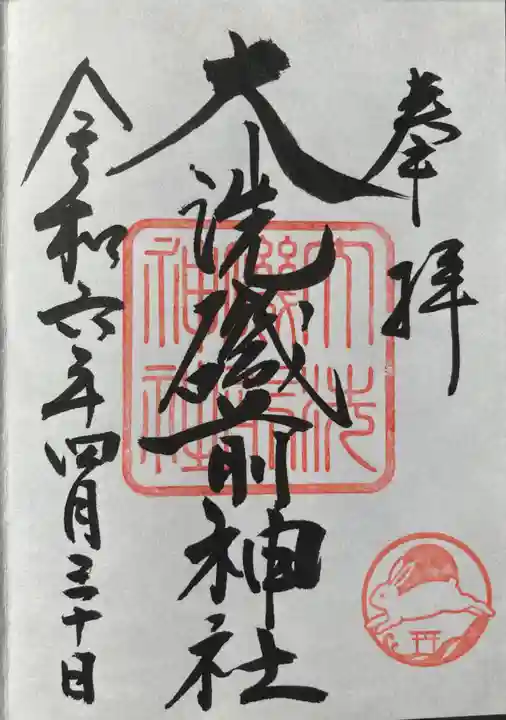 奉拝
大洗磯前神社
令和六年四月三十日
大洗
磯前
神社